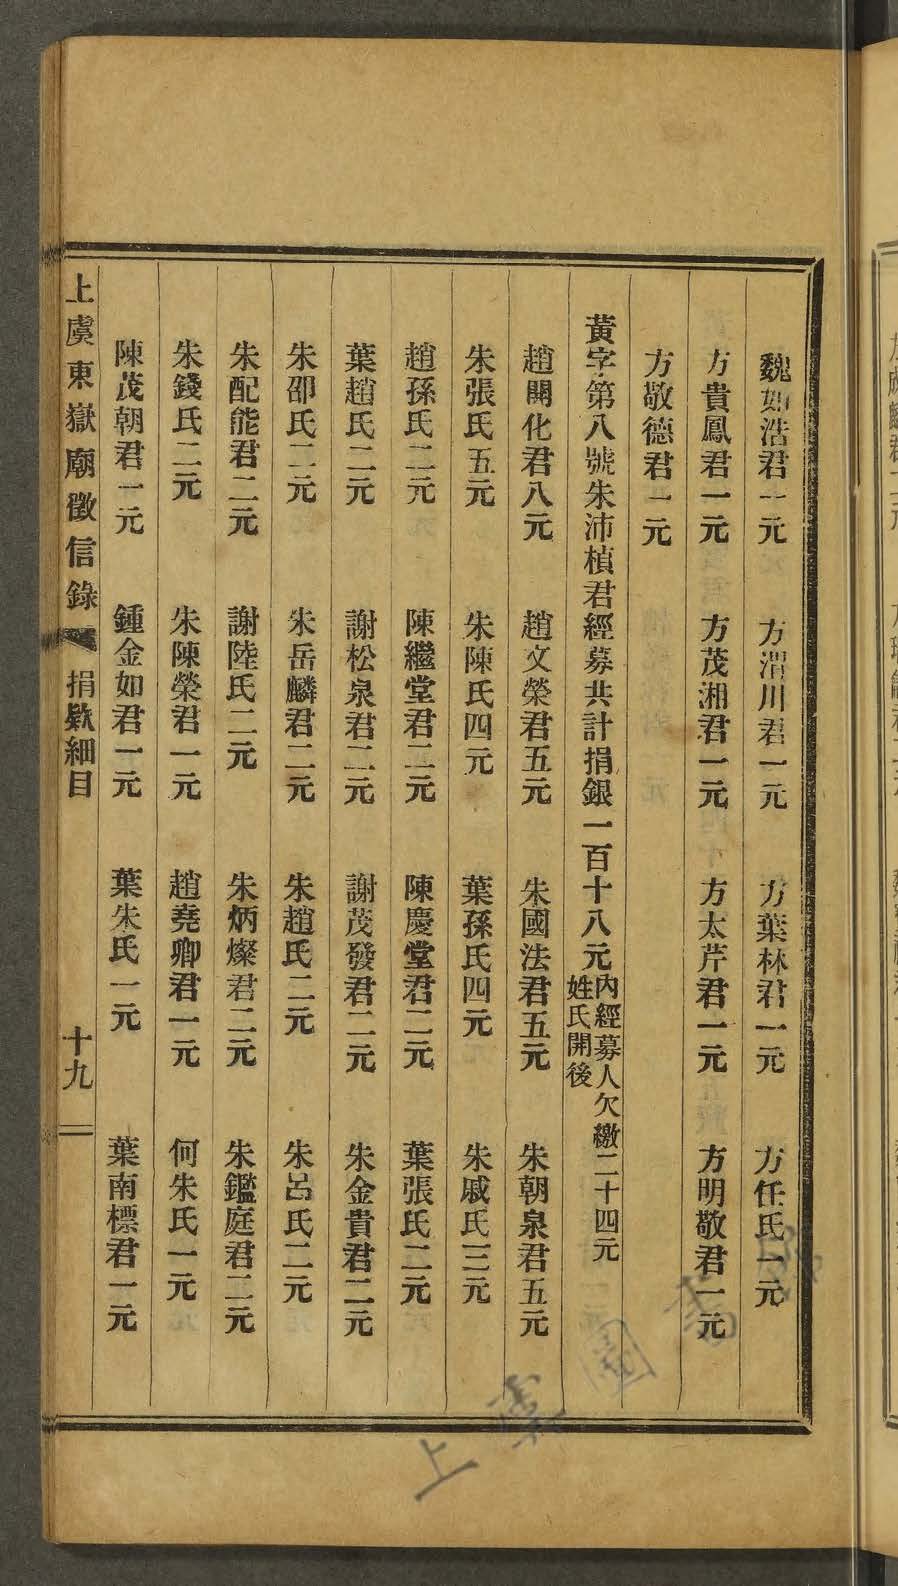 魏如浩君一元　方渭川君一元　方葉林君一元　方任氏一元
方貴鳳君一元　方茂湘君一元　方太芹君一元　方明敬君一元
方敬德君一元
黃字第八號朱沛楨君經募共計捐銀一百十八元內經募人欠繳二十四元姓氏開後
趙開化君八元　趙文榮君五元　朱國法君五元　朱朝泉君五元
朱張氏五元　朱陳氏四元　葉孫氏四元　朱戚氏三元
趙孫氏二元　陳繼堂君二元　陳慶堂君二元　葉張氏二元
葉趙氏二元　謝松泉君二元　謝茂發君二元　朱金貴君二元
朱邵氏二元　朱岳麟君二元　朱趙氏二元　朱呂氏二元
朱配能君二元　謝陸氏二元　朱炳燦君二元　朱鑑庭君二元
朱錢氏二元　朱陳榮君一元　趙堯卿君一元　何朱氏一元
陳茂朝君一元　鍾金如君一元　葉朱氏一元　葉南標君一元
上虞東嶽廟徵信錄　捐欵細目　十九
上虞圖書